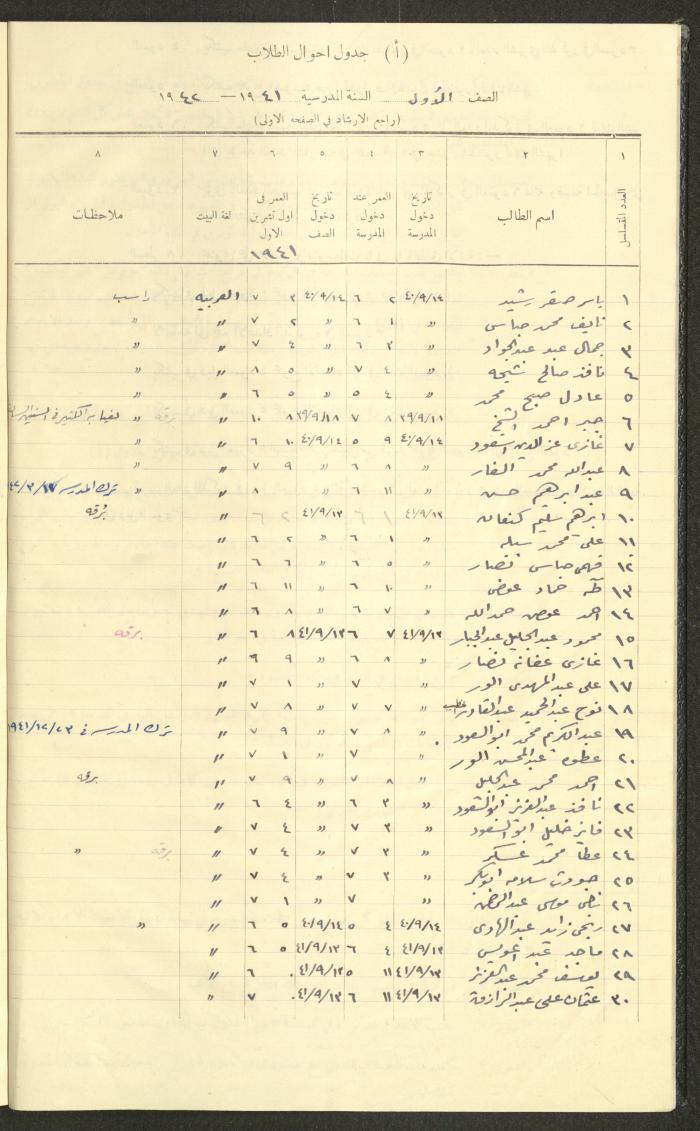 (أ) جدول احوال الطلاب
الصف الأول السنة المدرسية ١٩٤١ — ١٩٤٢
(راجع الارشاد في الصفحه الاولى)
١ ٢ ٣ ٤ ٥ ٦ ٧ ٨
العدد المتسلسل اسم الطالب تاريخ دخول المدرسة العمر عند دخول المدرسة تاريخ دخول الصف العمر في اول تشرين الاول ١٩٤١ لغة البيت ملاحظات
١ ياسر صقر رشيد ٤٠/٩/١٤ ٢ ٦ ٤٠/٩/١٤ ٣ ٧ العربيه راسب
٢ نايف محمد عباسي " ١ ٦ " ٢ ٧ " "
٣ جمال عبد عبد الجواد " ٣ ٦ " ٤ ٧ " "
٤ نافذ صالح " ٤ ٧ " ٥ ٨ " "
٥ عادل صبح محمد " ٤ ٥ " ٥ ٦ " "
٦ جبر احمد الشيخ ٣٩/٩/١٨ ٨ ٧ ٣٩/٩/١٨ ٨ ١٠ " " برقه
٧ غازي عز الدين ٤٠/٩/١٤ ٩ ٥ ٤٠/٩/١٤ ١٠ ٦ " "
٨ عبدالله محمد " ٨ ٦ " ٩ ٧ " "
٩ عبد ابرهيم حسن " ١١ ٦ " ٨ " " ترك المدرسه
١٠ ابرهيم سليم كنعان ٤١/٩/١٣ ١ ٦ ٤١/٩/١٣ ٢ ٦ " برقه
١١ علي محمد " ١ ٦ " ٢ ٦ "
١٢ فهمي عباسي نصار " ٥ ٦ " ٦ ٦ "
١٣ طه حماد عوض " ١٠ ٦ " ١١ ٦ "
١٤ احمد عوض حمدالله " ٧ ٦ " ٨ ٦ "
١٥ محمود عبدالجليل عبدالجبار ٤١/٩/١٣ ٧ ٦ ٤١/٩/١٣ ٨ ٦ " برقه
١٦ غازي نصار " ٨ ٦ " ٩ ٩ "
١٧ علي عبد المهدي الور " ٧ " ١ ٧ "
١٨ نوح عبدالحميد عبدالقادر " ٧ ٧ " ٨ ٧ "
١٩ عبدالكريم محمد ابوالسعود " ٨ ٧ " ٩ ٧ " ترك المدرسه في ١٩٤١/١٢/٢٣
٢٠ عطوه عبدالمحسن الور " ٧ " ١ ٧ "
٢١ احمد محمد عبدالجليل " ٨ ٧ " ٩ ٧ " برقه
٢٢ نافذ عبدالعزيز ابوالسعود " ٣ ٦ " ٤ ٦ "
٢٣ فايز خليل ابوالسعود " ٣ ٧ " ٤ ٧ "
٢٤ عطا محمد عسكر " ٣ ٧ " ٤ ٧ " برقه "
٢٥ جودت سلامه ابوبكر " ٣ ٧ " ٤ ٧ "
٢٦ موسى عبدالرحمن " ٧ " ١ ٧ "
٢٧ زايد عبدالهادي ٤٠/٩/١٤ ٤ ٥ ٤٠/٩/١٤ ٥ ٦ " "
٢٨ ماجد عبد ٤١/٩/١٣ ٤ ٦ ٤١/٩/١٣ ٥ ٦ "
٢٩ يوسف محمد عبدالعزيز ٤١/٩/١٣ ١١ ٥ ٤١/٩/١٣ ٠ ٦ "
٣٠ عثمان علي عبدالرازق ٤١/٩/١٣ ١١ ٦ ٤١/٩/١٣ ٠ ٧ "